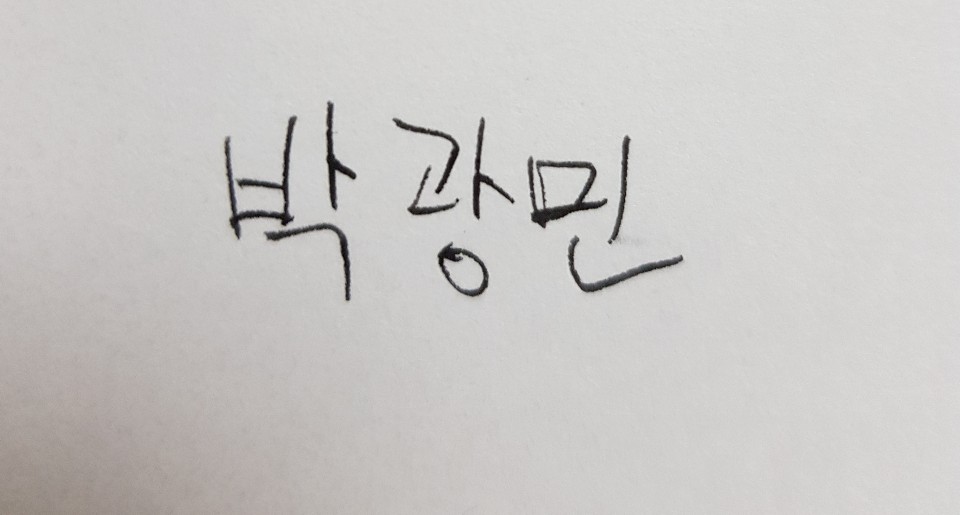 박광민